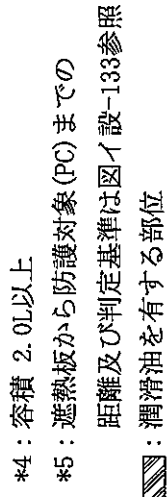 *4：容積 2.0L以上
*5：遮熱板から防護対象(PC)までの
距離及び判定基準は図イ設-133参照
：潤滑油を有する部位